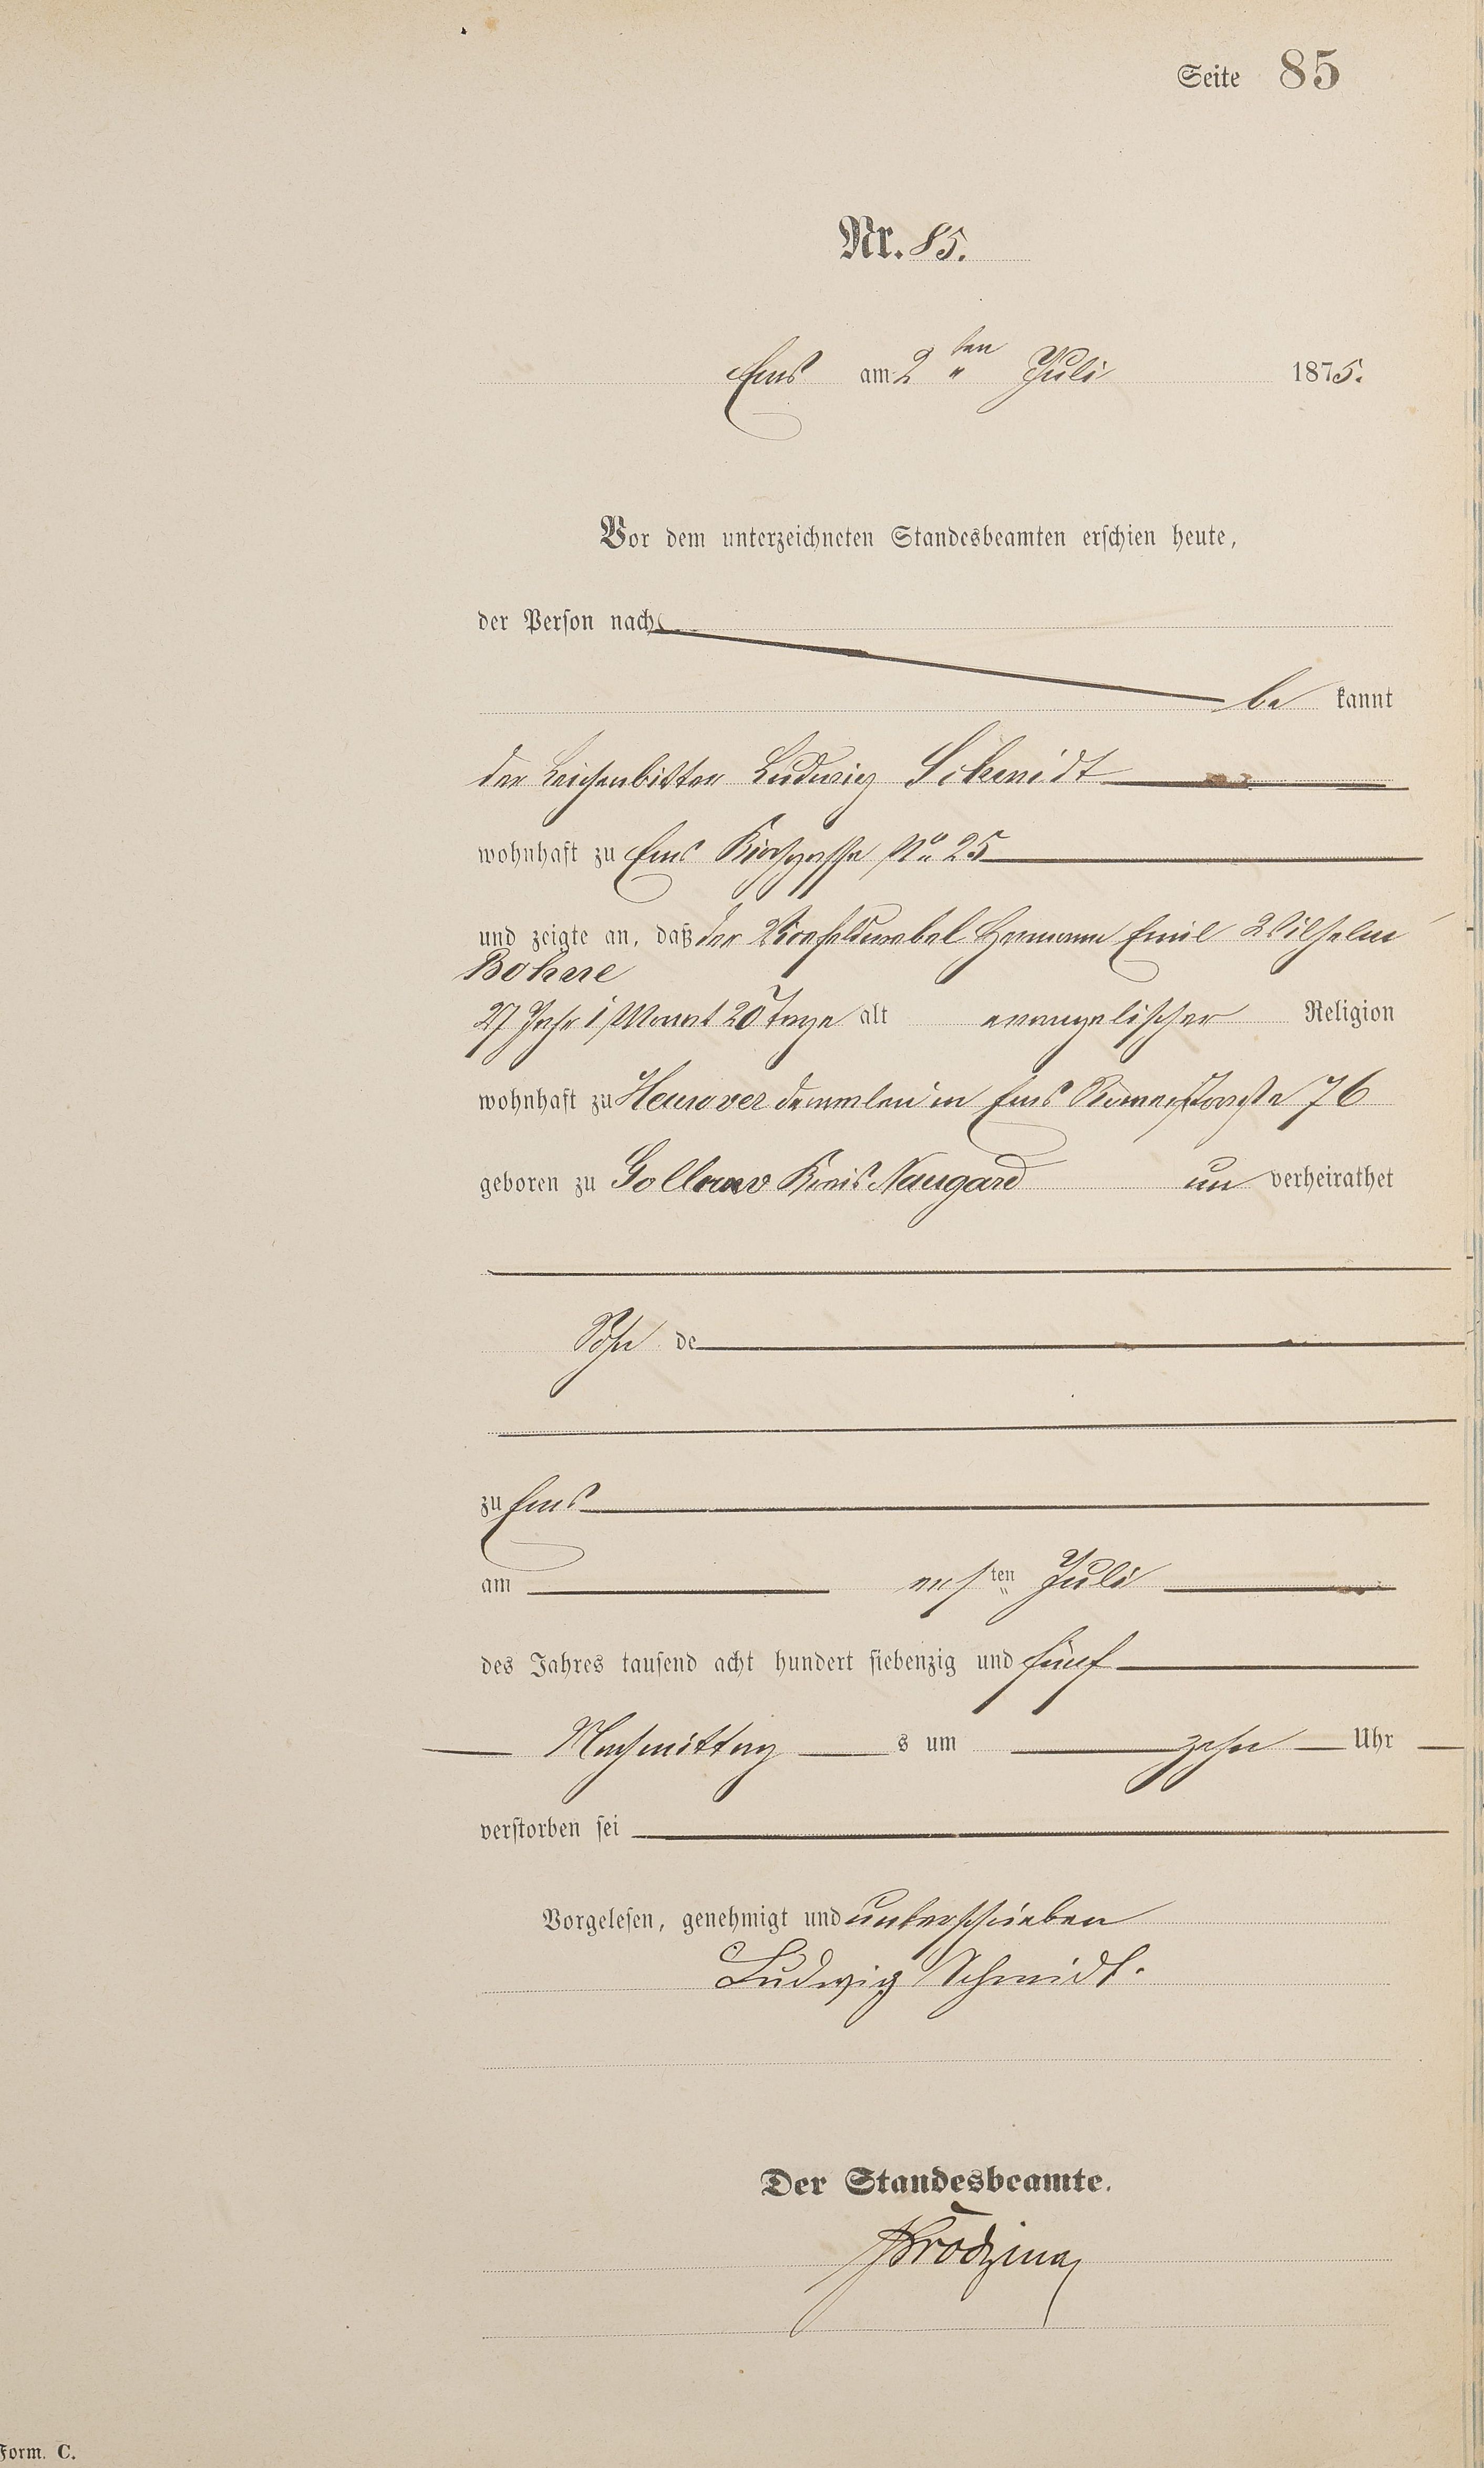 Seite 85
Nr. 85.
Ems am 2 ten Juli 1875.
Vor dem unterzeichneten Standesbeamten erschien heute,
der Person nach
be kannt
der Leichenbitter Ludwig Schmidt
wohnhaft zu Ems Kirchgasse No 25
und zeigte an, daß der Vicefeldwebel Hermann Emil Wilhelm
Bohne
27 Jahr 1 Monat 20 Tage alt evangelischer Religion
wohnhaft zu Hannover dermalen in Ems Römerstraße 76
geboren zu Gollnow Kreis Naugard un verheirathet
Sohn de
zu Ems
am ersten Juli
des Jahres tausend acht hundert siebenzig und fünf
Nachmittag s um zehn Uhr
verstorben sei
Vorgelesen, genehmigt und unterschrieben
Ludwig Schmidt.
Der Standesbeamte.
Form. C.